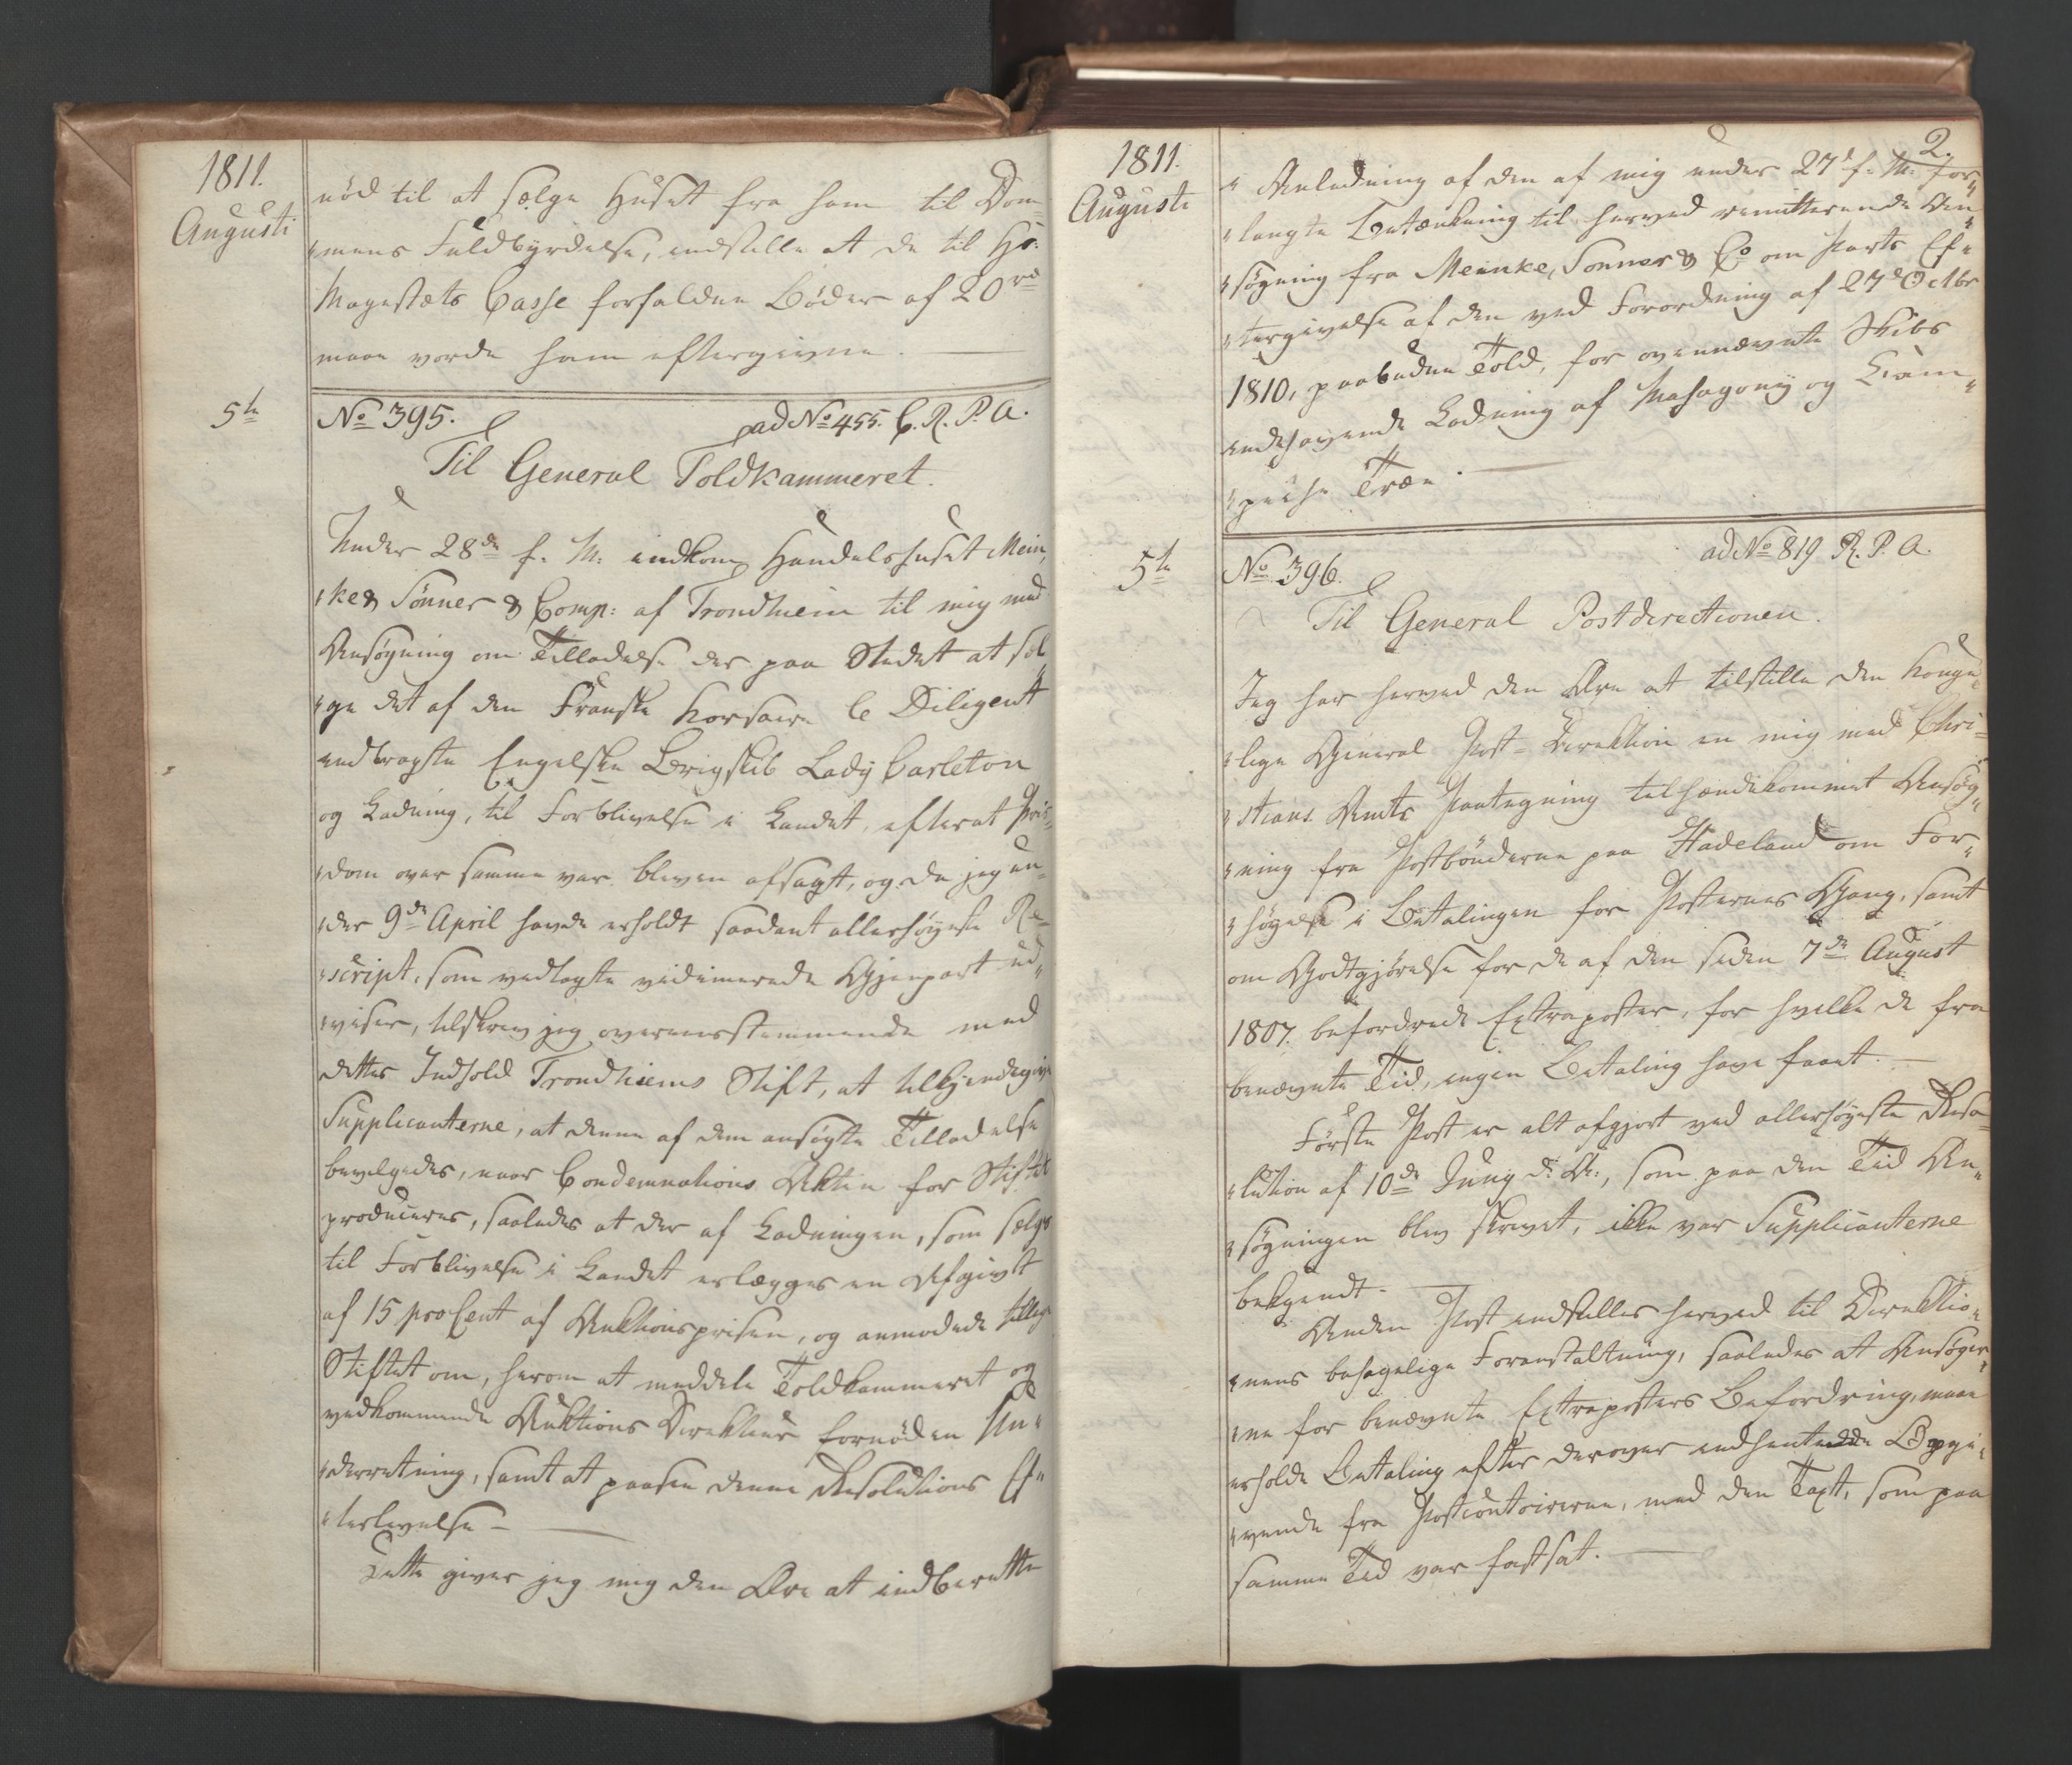 1811.
Augusti
nöd til at sælge Huset fra ham til Dom-
mens Fuldbyrdelse, indstille at de til Hs:
Mayestæts Casse forfaldne Böder af 20 rd
maae vorde ham eftergivne.
5te
No 395.
ad No 455. C. R. P. A.
Til General Toldkammeret.
Under 28de f. M. indkom Handelshuset Mein-
ke & Sönner & Comp: af Trondhiem til mig med
Ansögning om Tilladelse der paa Stedet at sæl-
ge det af den Franske Korsaire le Diligent
indbragte Engelske Brigskib Lady Carleton
og Ladning, til Forblivelse i Landet, efterat Priis-
dom over samme var bleven afsagt, og da jeg un-
der 9de April havde erholdt saadant allerhöyeste Re-
script, som vedlagte vidimerede Gjenpart ud-
viser, tilskrev jeg overeensstemmende med
dettes Indhold Trondhiems Stift, at tilkjendegive
Supplicanterne, at denne af dem ansögte Tilladelse
bevilgedes, naar Condemnations Akten for Stiftet
produceres, saaledes at der af Ladningen, som sælges
til Forblivelse i Landet erlægges en Afgivt
af 15 pro Cent af Auktionsprisen, og anmodede tillige
Stiftet om, herom at meddele Toldkammeret og
vedkommende Auktions Direkteur fornöden Un-
derretning, samt at paasee denne Resolutions Ef-
terlevelse.
Dette giver jeg mig den Ære at indberette
1811.
Augusti
2.
i Anledning af den af mig under 27de f. M. for-
langte Betænkning til herved remitterende An-
sögning fra Meinke, Sönner & Co om Parts Ef-
tergivelse af den ved Forordning af 27de Octbr
1810, paabudne Told, for ovennævnte Skibs
indehavende Ladning af Mahagony og Cam-
peche Træe.
5te
No 396.
ad No 819 R. P. A.
Til General Postdirectionen.
Jeg har herved den Ære at tilstille den Konge-
lige General Post-Direktion en mig med Chri-
stians Amts Paategning tilhændekommet Ansög-
ning fra Postbönderne paa Hadeland om For-
höyelse i Betalingen for Posternes Gang, samt
om Godtgjörelse for de af den siden 7de August
1807. befordrede Extraposter, for hvilke de fra
benævnte Tid, ingen Betaling have faaet.
Förste Post er alt afgjort ved allerhöyeste Reso-
lution af 10de Juny d. A., som paa den Tid An-
sögningen blev skrevet, ikke var Supplicanterne
bekjendt.
Anden Post indstilles herved til Direktio-
nens behagelige Foranstaltning, saaledes at Ansöger-
ne for benævnte Extraposters Befordring, maae
erholde Betaling efter derover indhentede Opgi-
vende fra Postcontoirerne, med den Taxt, som paa
samme Tid var fastsat.